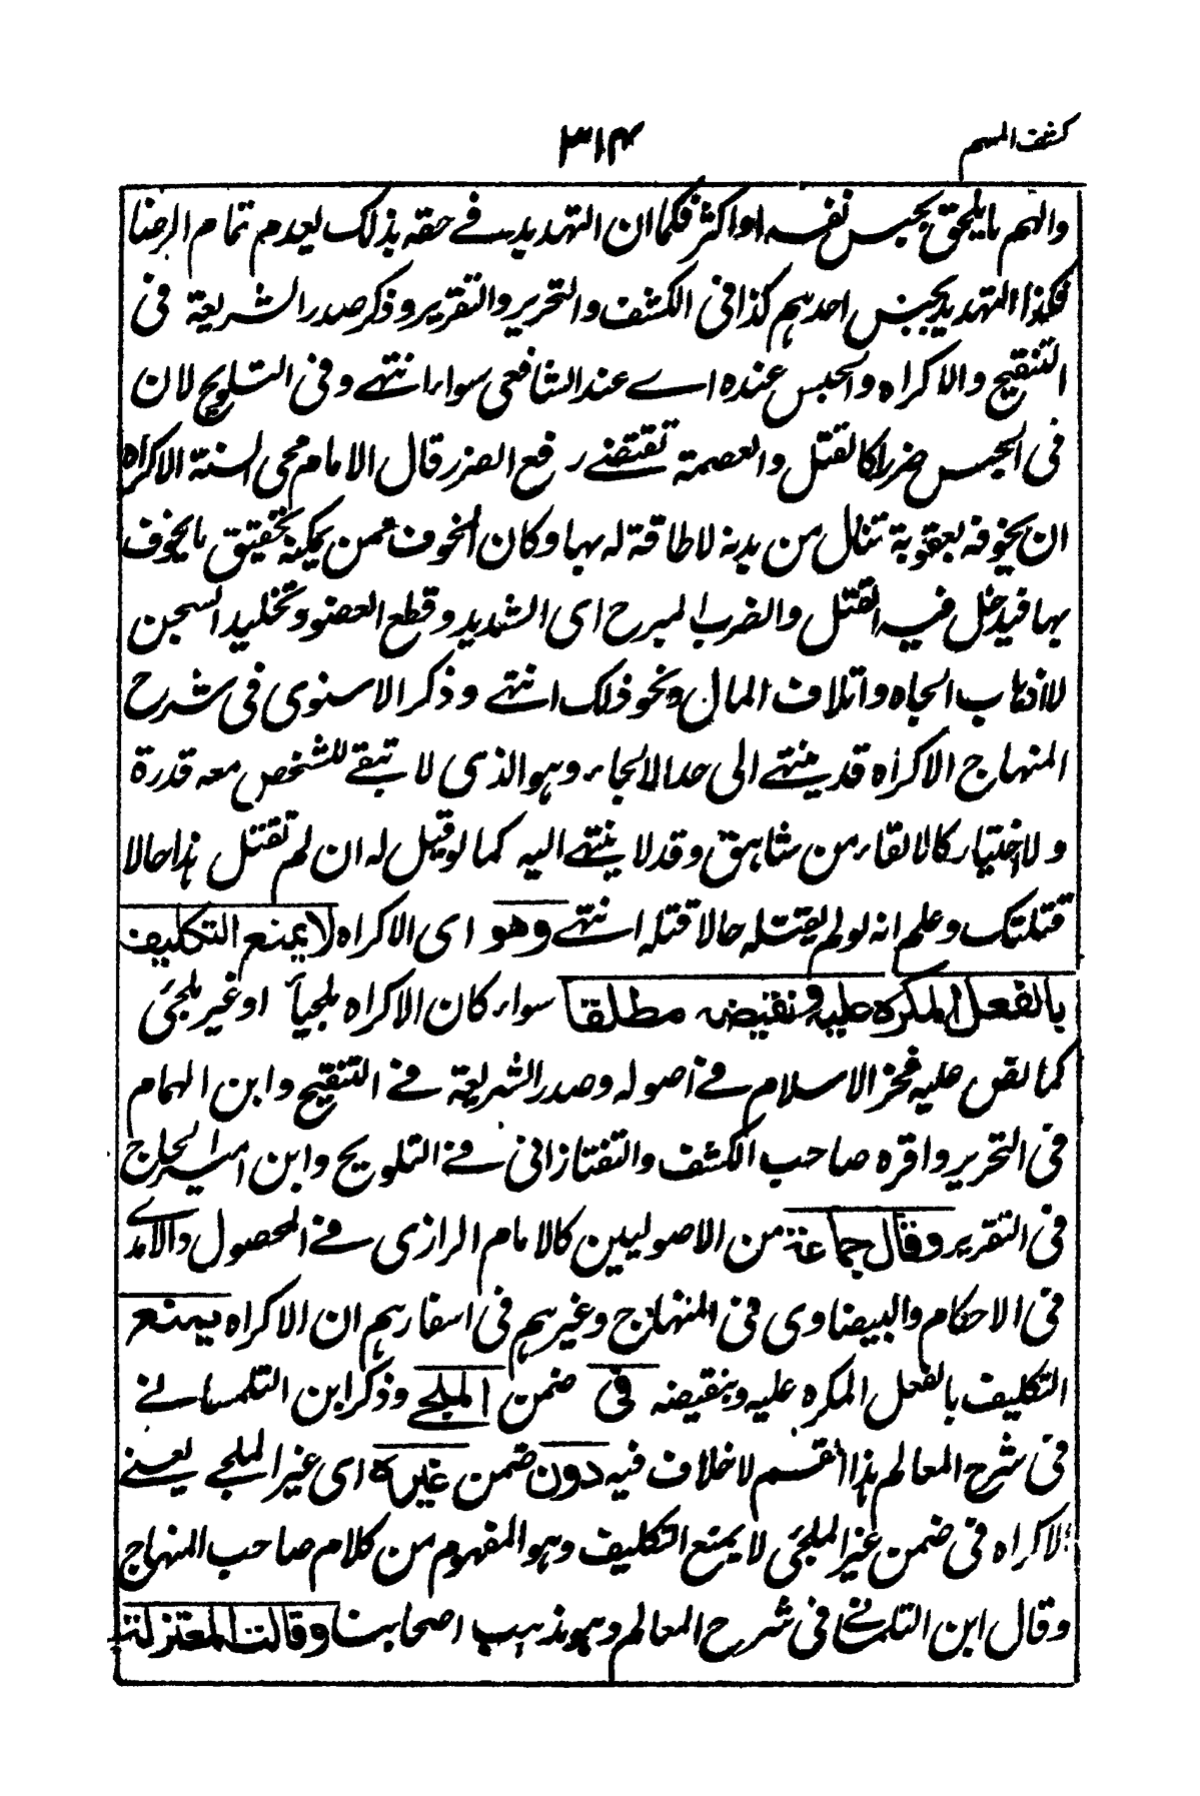 كشف المبهم
٣١٤
والهم ما يلحق بحبس نفسه او اكثر فكما ان التهديد في حقه بذلك يعدم تمام الرضا
فكذا التهديد بحبس احدهم كذا في الكشف والتحرير والتقرير وذكر صدر الشريعة في
التنقيح والاكراه والحبس عنده اے عند الشافعي سواء انتهى وفي التلويح لان
في الحبس ضررا كالقتل والعصمة تقتضي رفع الضرر قال الامام محي السنة الاكراه
ان يخوفه بعقوبة تنال من بدنه لا طاقة له بها وكان المخوف ممن يمكنه تحقيق ما يخوف
بها فيدخل فيه القتل والضرب المبرح اى الشديد وقطع العضو وتخليد السجن
لا اذهاب الجاه واتلاف المال ونحو ذلك انتهى وذكر الاسنوى في شرح
المنهاج الاكراه قد ينتهى الى حد الالجاء وهو الذى لا تبقى للشخص معه قدرة
ولا اختيار كالالقاء من شاهق وقد لا ينتهى اليه كما لو قيل له ان لم تقتل هذا حالا
قتلتك وعلم انه لو لم يقتله حالا قتله انتهى وهو اى الاكراه لا يمنع التكليف
بالفعل المكره عليه ونقيضه مطلقا سواء كان الاكراه ملجيأ او غير ملجئى
كما نص عليه فخر الاسلام في اصوله وصدر الشريعة في التنقيح وابن الهمام
في التحرير واقره صاحب الكشف والتفتازانى في التلويح وابن امير الحاج
في التقرير وقال جماعة من الاصوليين كالامام الرازى في المحصول والآمدے
في الاحكام والبيضاوى في المنهاج وغيرهم في اسفارهم ان الاكراه يمنع
التكليف بالفعل المكره عليه وبنقيضه في ضمن الملجے وذكر ابن التلمسانے
في شرح المعالم هذا القسم لا خلاف فيه دون ضمن غيره اى غير الملجے يعنے
الاكراه في ضمن غير الملجئى لا يمنع التكليف وهو المفهوم من كلام صاحب المنهاج
وقال ابن التلمسانے في شرح المعالم وهو مذهب اصحابنا وقالت المعتزلة